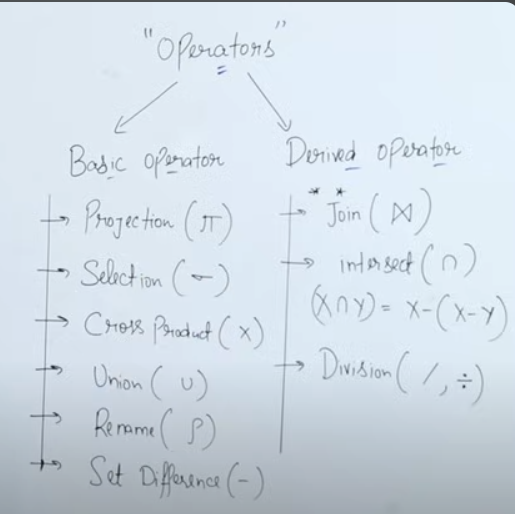 "Operators"
Basic operator
→ Projection (π)
→ Selection (σ)
→ Cross Product (×)
→ Union (∪)
→ Rename (ρ)
→ Set Difference (-)
Derived operator
* *
→ Join (⋈)
→ intersect (∩)
(X∩Y) = X-(X-Y)
→ Division (/, ÷)